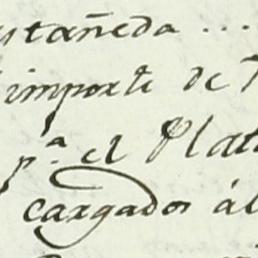 stañeda ...
importe de
p.ª el Plat
cargados ál